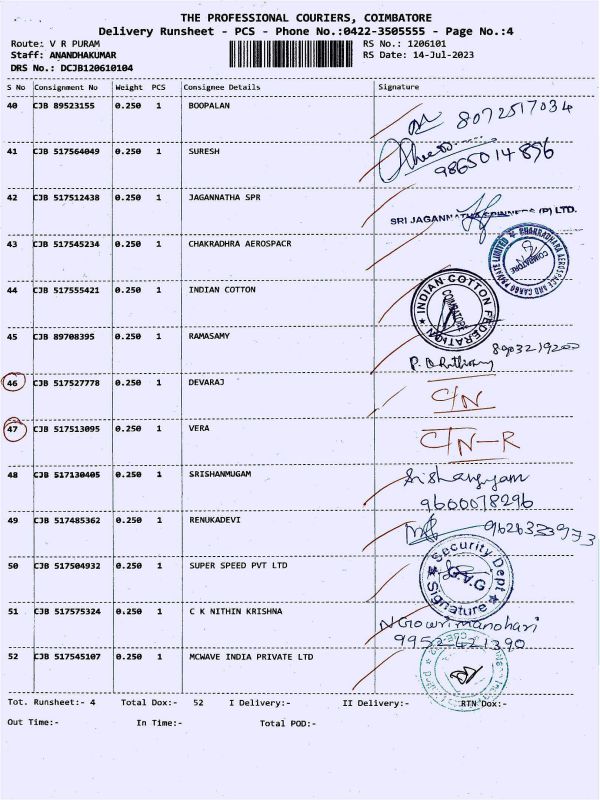 THE PROFESSIONAL COURIERS, COIMBATORE
Delivery Runsheet - PCS - Phone No.:0422-3505555 - Page No.:4
Route: V R PURAM RS No.: 1206101
Staff: ANANDHAKUMAR RS Date: 14-Jul-2023
DRS No.: DCJB120610104
S No Consignment No Weight PCS Consignee Details Signature
40 CJB 89523155 0.250 1 BOOPALAN 8072517034
41 CJB 517564049 0.250 1 SURESH 9865014896
42 CJB 517512438 0.250 1 JAGANNATHA SPR SRI JAGANNATHA SPINNERS (P) LTD.
43 CJB 517545234 0.250 1 CHAKRADHRA AEROSPACR CHAKRADHARA AEROSPACE AND CARGO PRIVATE LIMITED COIMBATORE
44 CJB 517555421 0.250 1 INDIAN COTTON INDIAN COTTON FEDERATION COIMBATORE
45 CJB 89708395 0.250 1 RAMASAMY
46 CJB 517527778 0.250 1 DEVARAJ C/N
47 CJB 517513095 0.250 1 VERA C/N-R
48 CJB 517130405 0.250 1 SRISHANMUGAM
9600078296
49 CJB 517485362 0.250 1 RENUKADEVI 9626333973
50 CJB 517504932 0.250 1 SUPER SPEED PVT LTD Security Dept G.V.G Signature
51 CJB 517575324 0.250 1 C K NITHIN KRISHNA N Gowri manohari
9952421390
52 CJB 517545107 0.250 1 MCWAVE INDIA PRIVATE LTD
Tot. Runsheet:- 4 Total Dox:- 52 I Delivery:- II Delivery:- RTN Dox:-
Out Time:- In Time:- Total POD:-